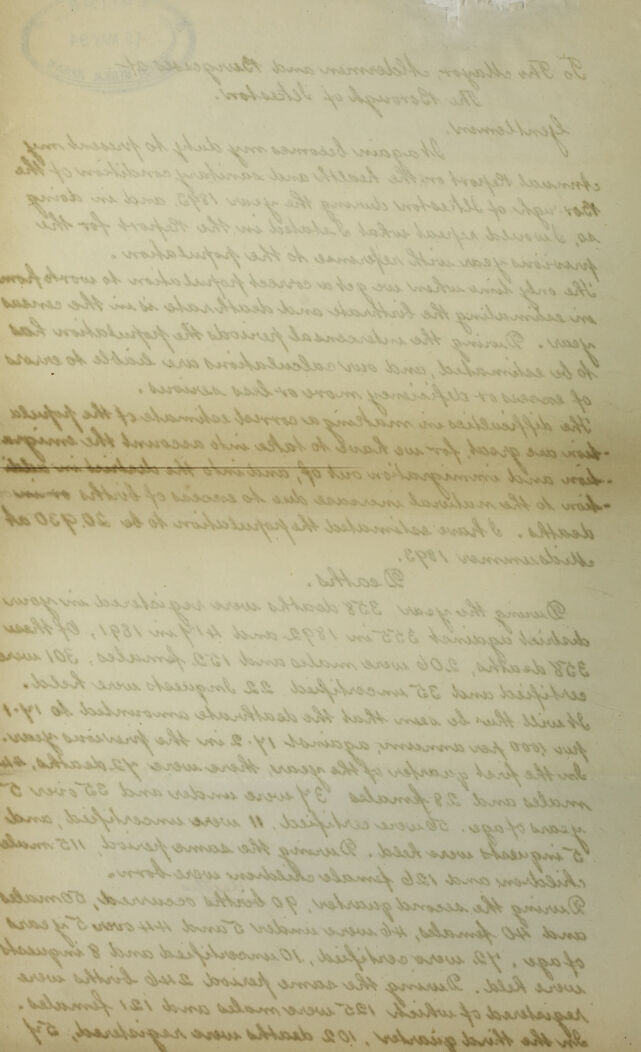 15 MAY 94
To The Mayor, Aldermen and Burgesses of
The Borough of Ilkeston.
Gentlemen,
It again becomes my duty to present my
Annual Report on the health and sanitary condition of the
Borough of Ilkeston during the year 1893 and in doing
so I would repeat what I stated in the Report for the
previous year with reference to the population.
The only time when we get a correct population to work from
in estimating the birthrate and deathrate is in the census
year. During the intercensal periods the population has
to be estimated, and our calculations are liable to errors
of excess or deficiency more or less serious.
The difficulties in making a correct estimate of the popula
-tion are great for we have to take into account the emigra
-tion and immigration out of, and into the district in addi
-tion to the natural increase due to excess of births over
deaths. I have estimated the population to be 20,930 at
Midsummer 1893.
Deaths.
During the year 358 deaths were registered in your
district against 355 in 1892 and 417 in 1891, Of these
358 deaths, 206 were males and 152 females, 301 were
certified and 35 uncertified 22 Inquests were held.
It will thus be seen that the deathrate amounted to 17.1
per 1000 per annum, against 17.2 in the previous year.
In the first quarter of the year there were 72 deaths, 44
males and 28 females 37 were under and 35 over 5
years of age. 56 were certified, 11 were uncertified, and
5 inquests were held. During the same period, 115 male
children and 126 female children were born.
During the second quarter, 90 births occurred, 50 males
and 40 females, 46 were under 5 and 44 over 5 years
of age, 72 were certified, 10 uncertified and 8 inquests
were held. During the same period 246 births were
registered of which 125 were males and 121 females.
In the third quarter, 102 deaths were registered, 57